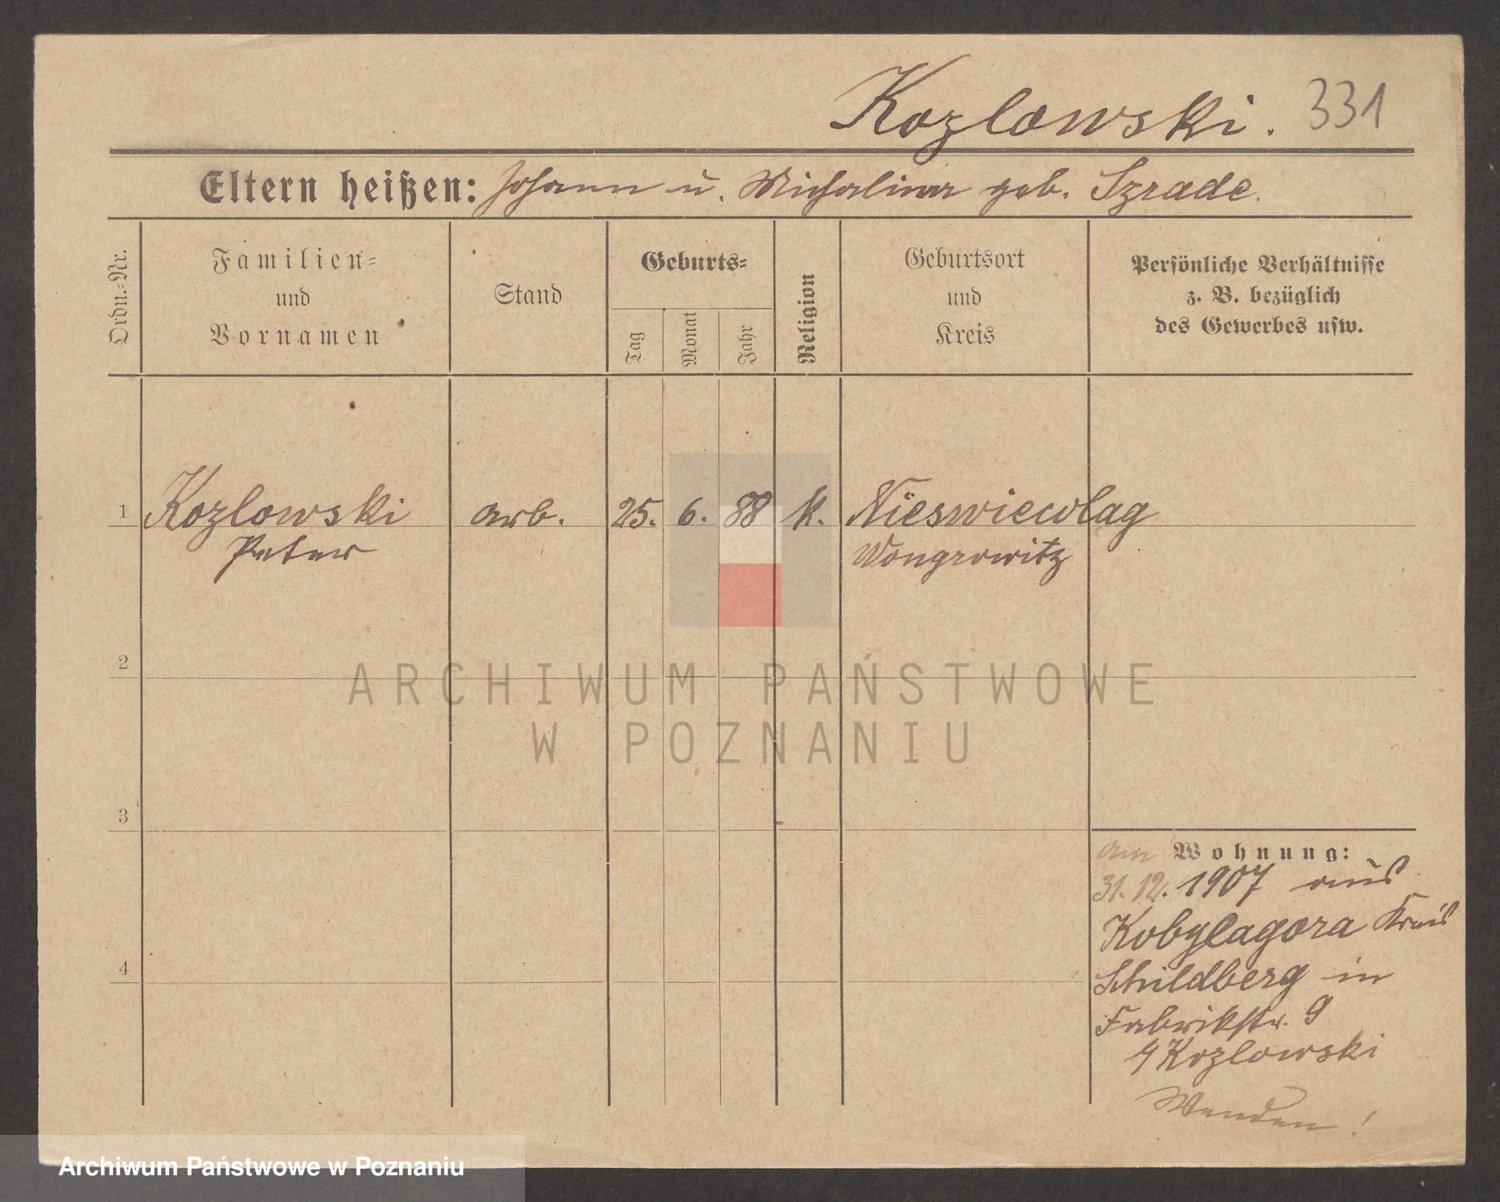 Kozlowski. 331
Eltern heißen: Johann u. Michalina geb. Szrade.
Ordn.-Nr.
Familien-
und
Vornamen
Stand
Geburts-
Tag
Monat
Jahr
Religion
Geburtsort
und
Kreis
Persönliche Verhältnisse
z. B. bezüglich
des Gewerbes usw.
1 Kozlowski arb. 25. 6. 88 k.
Peter
Wongrowitz
2
ARCHIWUM PAŃSTWOWE
W POZNANIU
3
am Wohnung:
31.12.1907 aus
Kobylagora Kreis
Schildberg in
Fabrikstr. 9
Kozlowski
Wenden!
4
Archiwum Państwowe w Poznaniu